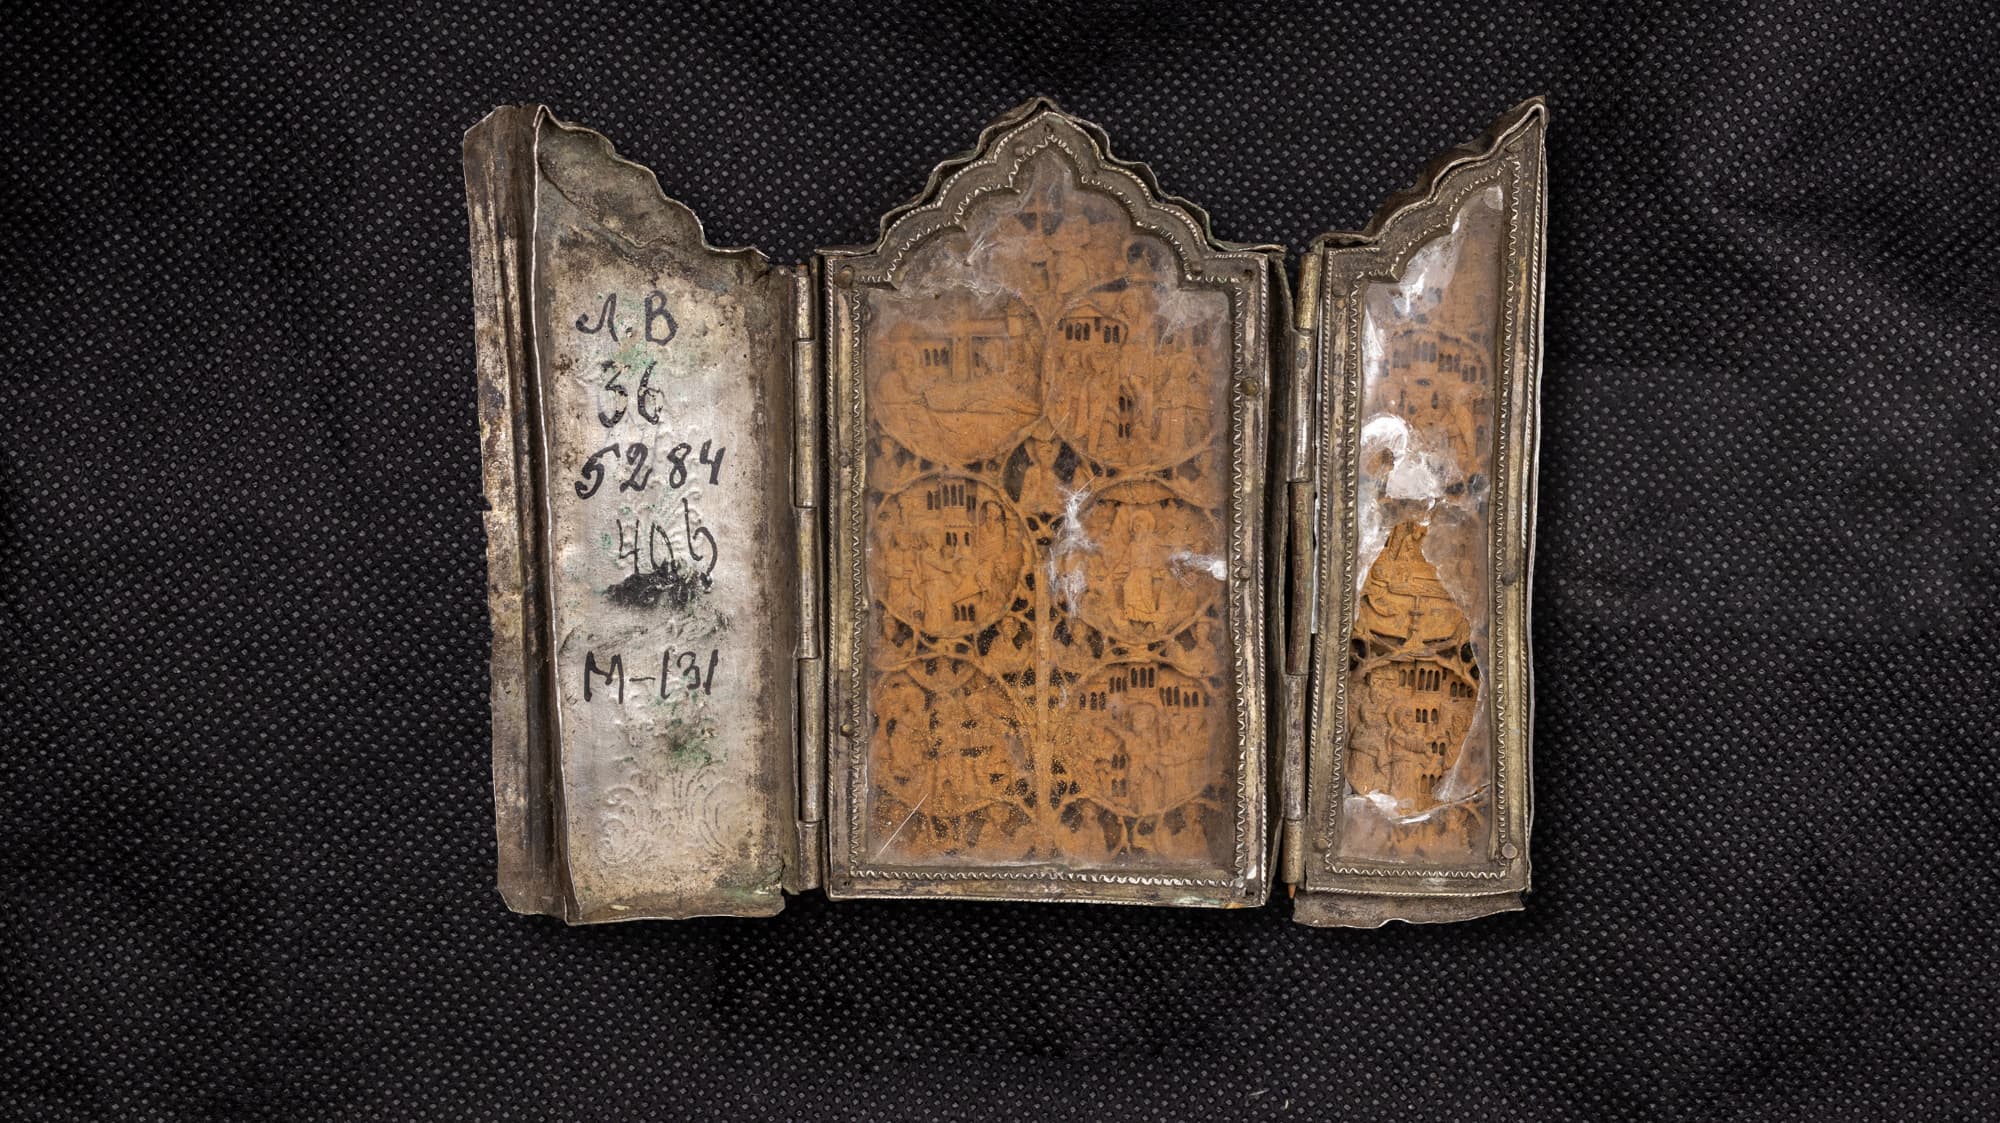 Л.В
36
5284
М-131